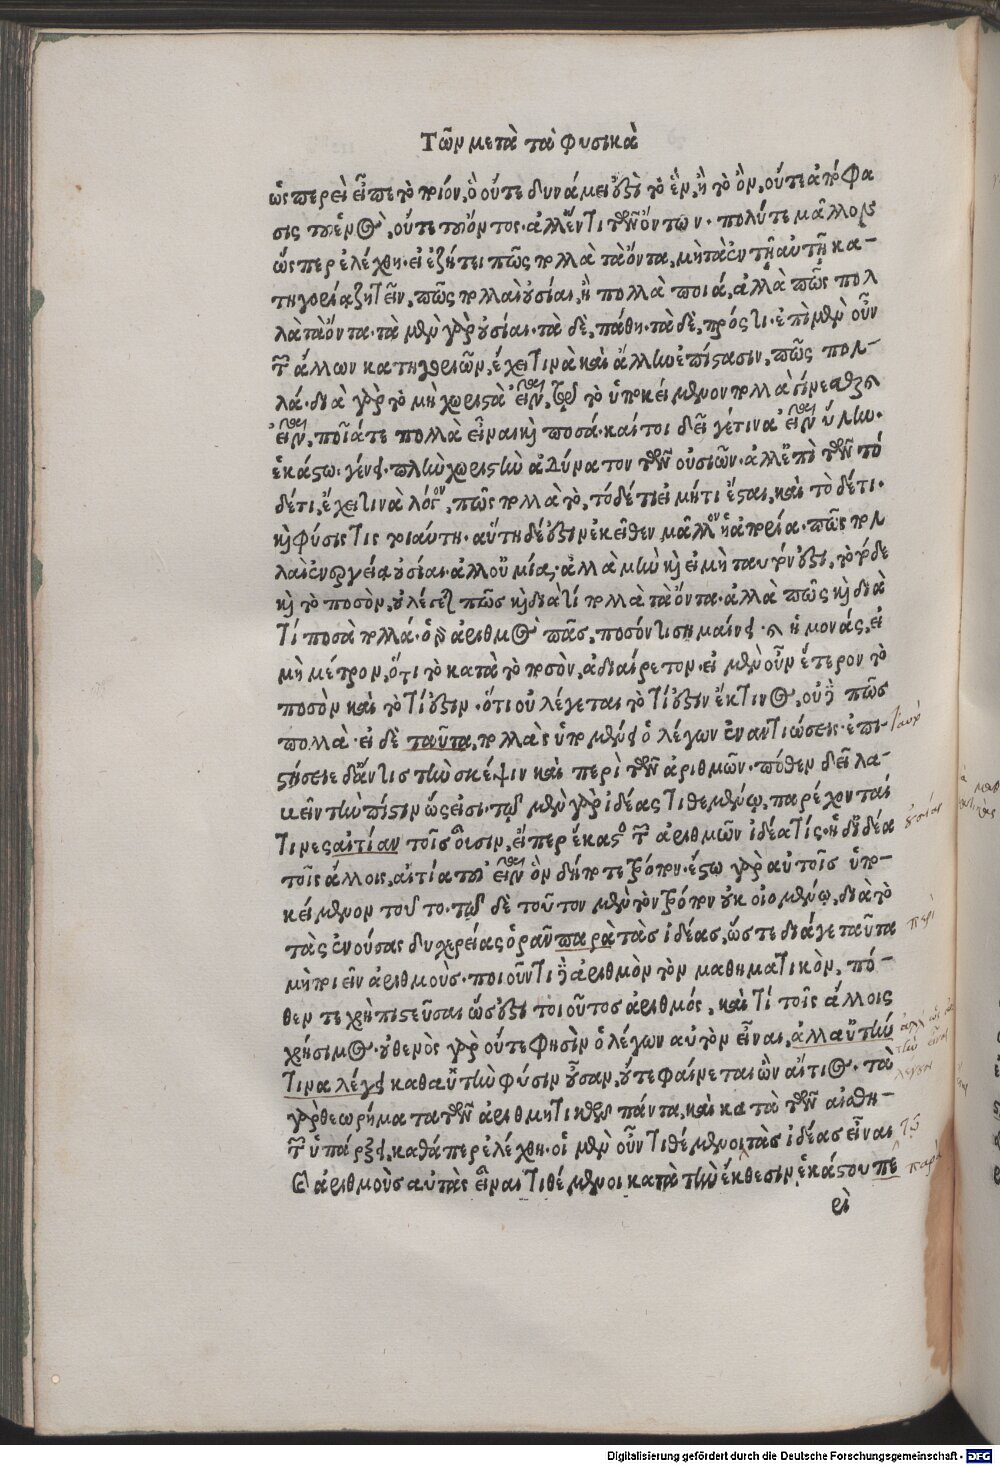 Τῶν μετὰ τὰ φυσικὰ
ὡσπερεὶ εἶπε τὸ ποιόν, ὃ οὔτε δυνάμει ἐστὶ τὸ ἓν, ἢ τὸ ὂν, οὔτε ἀπόφα
σις τοῦ ἑνὸς, οὔτε τοῦ ὄντος. ἀλλ' ἕν τι τῶν ὄντων. πολύ τε μᾶλλον
ὥσπερ ἐλέχθη. εἰ ἐζήτει πῶς πολλὰ τὰ ὄντα, μὴ τὰ ἐν τῇ αὐτῇ κα-
τηγορίᾳ ζητεῖν, πῶς πολλαὶ οὐσίαι, ἢ πολλὰ ποιά, ἀλλὰ πῶς πολ
λὰ τὰ ὄντα. τὰ μὲν γὰρ οὐσίαι. τὰ δὲ, πάθη. τὰ δὲ, πρός τι. ἐπὶ μὲν οὖν
τῶν ἄλλων κατηγοριῶν, ἔχει τινὰ καὶ ἄλλην ἐπίστασιν, πῶς πολ-
λά. διὰ γὰρ τὸ μὴ χωριστὰ εἶναι, τῷ τὸ ὑποκείμενον πολλὰ γίνεσθαι καὶ
εἶναι, ποιά τε πολλὰ εἶναι καὶ ποσά. καίτοι δεῖ γέ τινα εἶναι ὕλην.
ἑκάστῳ. γένει. πλὴν χωριστὴν ἀδύνατον τῶν οὐσιῶν. ἀλλ' ἐπὶ τῶν τό
δέ τι, ἔχει τινὰ λόγον, πῶς πολλὰ τὸ, τόδέ τι εἰ μή τι ἔσται, καὶ τὸ δέ τι.
καὶ φύσις τις τοιαύτη. αὕτη δέ ἐστιν ἐκεῖθεν μᾶλλον ἡ ἀπορία. πῶς πολ
λαὶ ἐνεργείᾳ οὐσίαι. ἀλλ' οὐ μία, ἀλλὰ μὴν καὶ εἰ μὴ ταυτόν ἐστι, τὸ τόδε
καὶ τὸ ποσὸν, οὐ λέγεται πῶς καὶ διὰ τί πολλὰ τὰ ὄντα. ἀλλὰ πῶς καὶ διὰ
τί ποσὰ πολλά. ὁ γὰρ ἀριθμὸς πᾶς, ποσόν τι σημαίνει. καὶ ἡ μονάς, εἰ
μὴ μέτρον, ὅτι τὸ κατὰ τὸ ποσὸν, ἀδιαίρετον. εἰ μὲν οὖν ἕτερον τὸ
ποσὸν καὶ τὸ τί ἐστιν. ὅτι οὐ λέγεται τὸ τί ἐστιν ἔκ τινος, οὐδὲ πῶς
πολλὰ. εἰ δὲ ταῦτα, πολλὰς ὑπομένει ὁ λέγων ἐναντιώσεις. ἐπι-
στήσειε δ' ἄν τις τὴν σκέψιν καὶ περὶ τῶν ἀριθμῶν. πόθεν δεῖ λα-
βεῖν τὴν πίστιν ὡς εἰσι. τῷ μὲν γὰρ ἰδέας τιθεμένῳ, παρέχονταί
τινες αἰτίαν τοῖς οὖσιν, εἴπερ ἕκαστος τῶν ἀριθμῶν ἰδέα τίς. ἡ δ' ἰδέα
τοῖς ἄλλοις, αἰτία τοῦ εἶναι ὂν δήποτε τρόπον. ἔστω γὰρ αὐτοῖς ὑπο-
κείμενον τοῦτο. τῷ δὲ τοῦτον μὲν τὸν τρόπον οὐκ οἰομένῳ, διὰ τὸ
τὰς ἐνούσας δυσχερείας ὁρᾶν παρὰ τὰς ἰδέας, ὥστε διά γε ταῦτα
μὴ ποιεῖν ἀριθμοὺς. ποιοῦντι δὲ ἀριθμὸν τὸν μαθηματικὸν, πό-
θεν τε χρὴ πιστεῦσαι ὡς ἐστι τοιοῦτος ἀριθμός, καὶ τί τοῖς ἄλλοις
χρήσιμος. οὐθενὸς γὰρ οὔτε φησὶν ὁ λέγων αὐτὸν εἶναι, ἀλλ' αὐτὴν
τινα λέγει καθ' αὑτὴν φύσιν οὖσαν, οὔτε φαίνεται ὢν αἴτιος. τὰ
γὰρ θεωρήματα τῶν ἀριθμητικῶν πάντα, καὶ κατὰ τῶν αἰσθη-
τῶν ὑπάρξει, καθάπερ ἐλέχθη. οἱ μὲν οὖν τιθέμενοι τὰς ἰδέας εἶναι
καὶ ἀριθμοὺς αὐτὰς εἶναι τιθέμενοι κατὰ τὴν ἔκθεσιν ἑκάστου πε
ρὶ
οὐσίαι
περὶ
λέγει
παρὰ
Digitalisierung gefördert durch die Deutsche Forschungsgemeinschaft - DFG